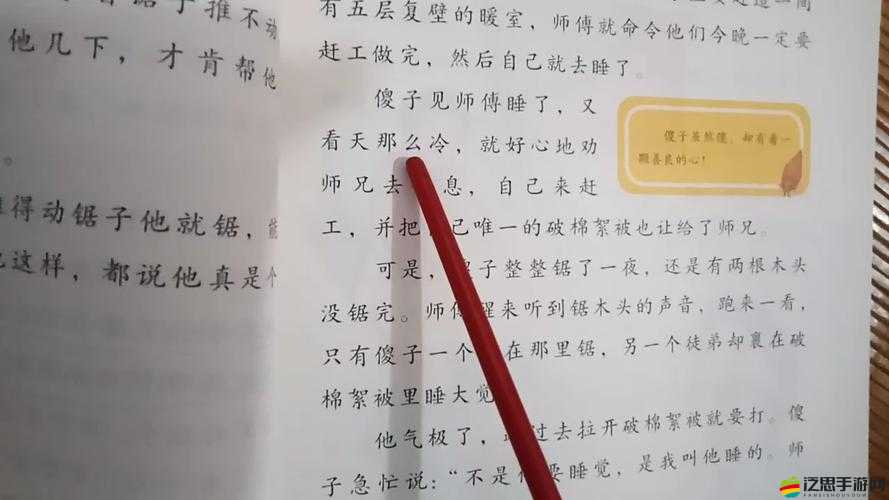 锯子推不动
他几下，才肯帮他
得动锯子他就锯，能
这样，都说他真是个
有五层复壁的暖室，师傅就命令他们今晚一定要
赶工做完，然后自己就去睡了。
傻子见师傅睡了，又
看天那么冷，就好心地劝
师兄去 息，自己来赶
工，并把 己唯一的破棉絮被也让给了师兄。
可是， 子整整锯了一夜，还是有两根木头
没锯完。师傅醒来听到锯木头的声音，跑来一看，
只有傻子一个 在那里锯，另一个徒弟却裹在破
棉絮被里睡大觉
他气极了， 过去拉开破棉絮被就要打。傻
子急忙说：“不是他要睡觉，是我叫他睡的。师
傻子虽然傻，却有着一
颗善良的心！
泛思手游网
FANSISHOUYOUWANG